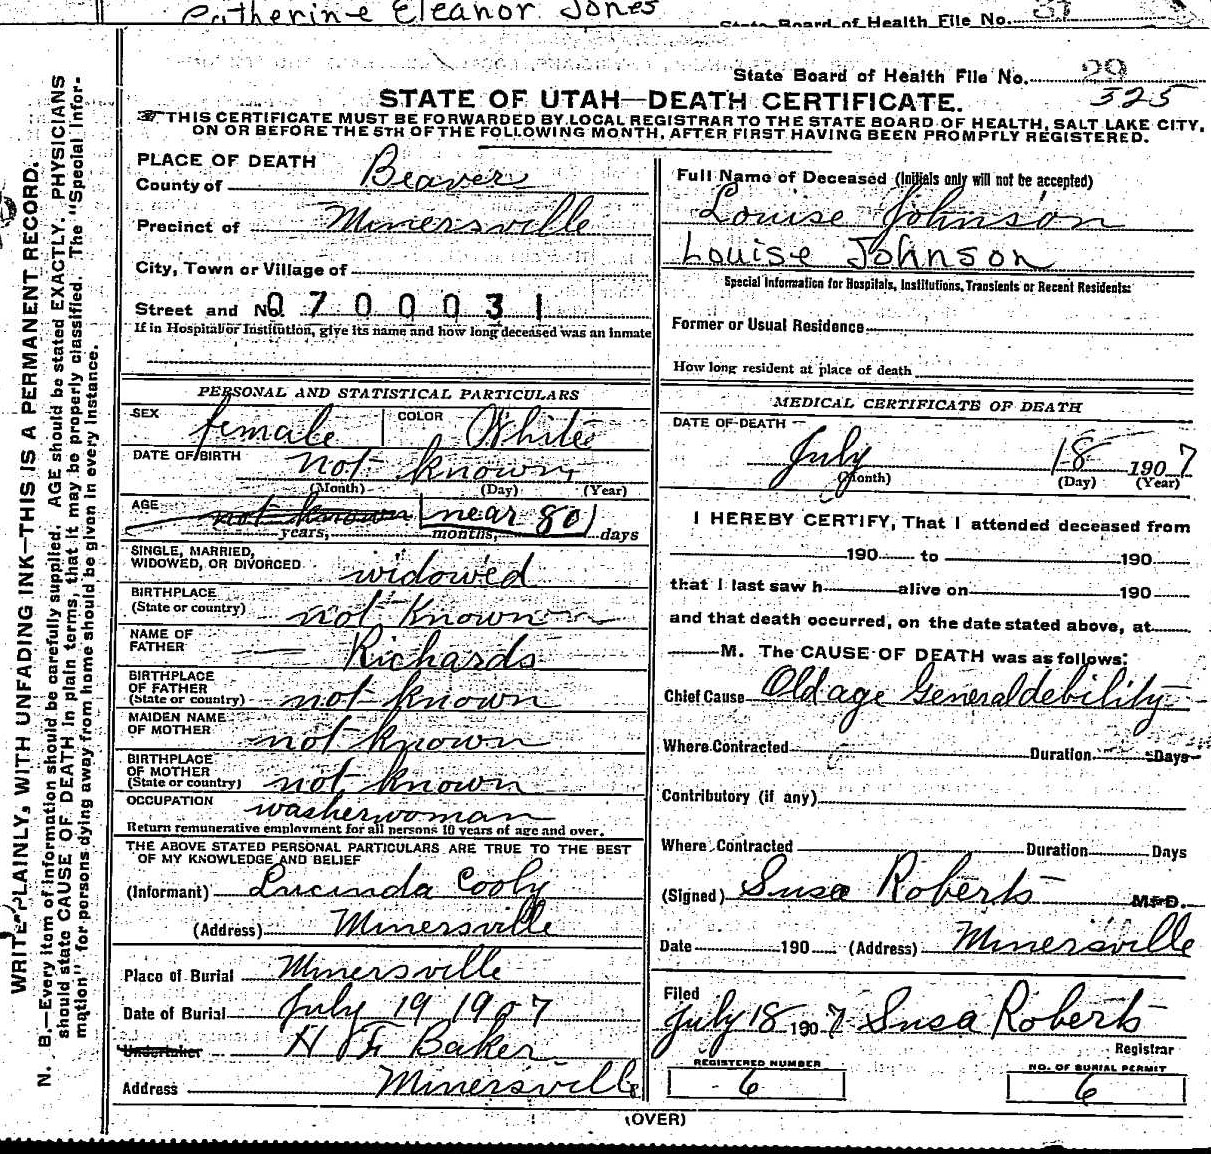 Catherine Eleanor Jones
State Board of Health File No.
WRITE PLAINLY, WITH UNFADING INK—THIS IS A PERMANENT RECORD.
N. B.—Every item of information should be carefully supplied. AGE should be stated EXACTLY. PHYSICIANS
should state CAUSE OF DEATH in plain terms, that it may be properly classified. The "Special Infor-
mation" for persons dying away from home should be given in every instance.
State Board of Health File No. 29
325
STATE OF UTAH—DEATH CERTIFICATE.
THIS CERTIFICATE MUST BE FORWARDED BY LOCAL REGISTRAR TO THE STATE BOARD OF HEALTH, SALT LAKE CITY,
ON OR BEFORE THE 5TH OF THE FOLLOWING MONTH, AFTER FIRST HAVING BEEN PROMPTLY REGISTERED.
PLACE OF DEATH
County of Beaver
Precinct of Minersville
City, Town or Village of
Street and No. 0700031
If in Hospital or Institution, give its name and how long deceased was an inmate
PERSONAL AND STATISTICAL PARTICULARS
SEX female COLOR White
DATE OF BIRTH not known
(Month) (Day) (Year)
AGE not known near 80
years, months, days
SINGLE, MARRIED,
WIDOWED, OR DIVORCED widowed
BIRTHPLACE
(State or country) not known
NAME OF
FATHER Richards
BIRTHPLACE
OF FATHER
(State or country) not known
MAIDEN NAME
OF MOTHER not known
BIRTHPLACE
OF MOTHER
(State or country) not known
OCCUPATION washerwoman
Return remunerative employment for all persons 10 years of age and over.
THE ABOVE STATED PERSONAL PARTICULARS ARE TRUE TO THE BEST
OF MY KNOWLEDGE AND BELIEF
(Informant) Lucinda Cooly
(Address) Minersville
Place of Burial Minersville
Date of Burial July 19 1907
Undertaker H F Baker
Address Minersville
Full Name of Deceased (Initials only will not be accepted)
Louise Johnson
Louise Johnson
Special Information for Hospitals, Institutions, Transients or Recent Residents:
Former or Usual Residence
How long resident at place of death
MEDICAL CERTIFICATE OF DEATH
DATE OF DEATH
July 18 1907
(Month) (Day) (Year)
I HEREBY CERTIFY, That I attended deceased from
190 to 190
that I last saw h alive on 190
and that death occurred, on the date stated above, at
M. The CAUSE OF DEATH was as follows:
Chief Cause Old age General debility
Where Contracted Duration Days
Contributory (if any)
Where Contracted Duration Days
(Signed) Susa Roberts M.D.
Date 190 (Address) Minersville
Filed
July 18 1907 Susa Roberts
Registrar
REGISTERED NUMBER
6
NO. OF BURIAL PERMIT
6
(OVER)